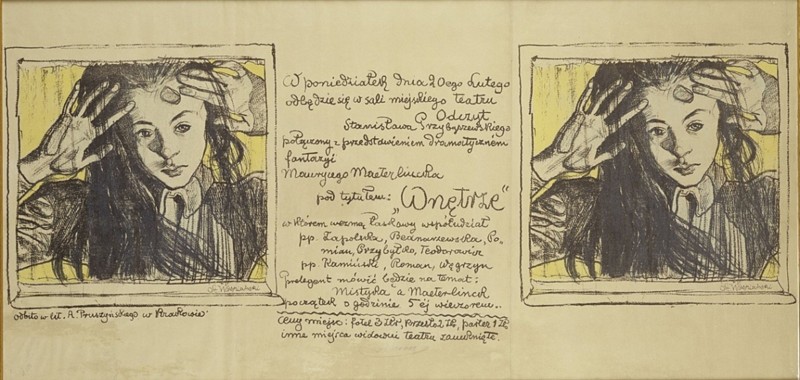 W poniedziałek dnia 20ego Lutego
odbędzie się w sali miejskiego teatru
Odczyt
Stanisława Przybyszewskiego
połączony z przedstawieniem dramatycznem
fantazyi
Maurycego Maeterlincka
pod tytułem: „Wnętrze”
w którem wezmą łaskawy współudział
pp. Zapolska, Bednarzewska, Po-
mian, Przybyłko, Teodorowicz
pp. Kamiński, Roman, Węgrzyn
Prelegent mówić będzie na temat:
Mistyka a Maeterlinck
początek o godzinie 5ej wieczorem.
Ceny miejsc: fotel 3 złr, krzesło 2 złr, parter 1 złr
inne miejsca widowni teatru zamknięte.
odbito w lit. A. Pruszyńskiego w Krakowie
St. Wyspiański
St. Wyspiański